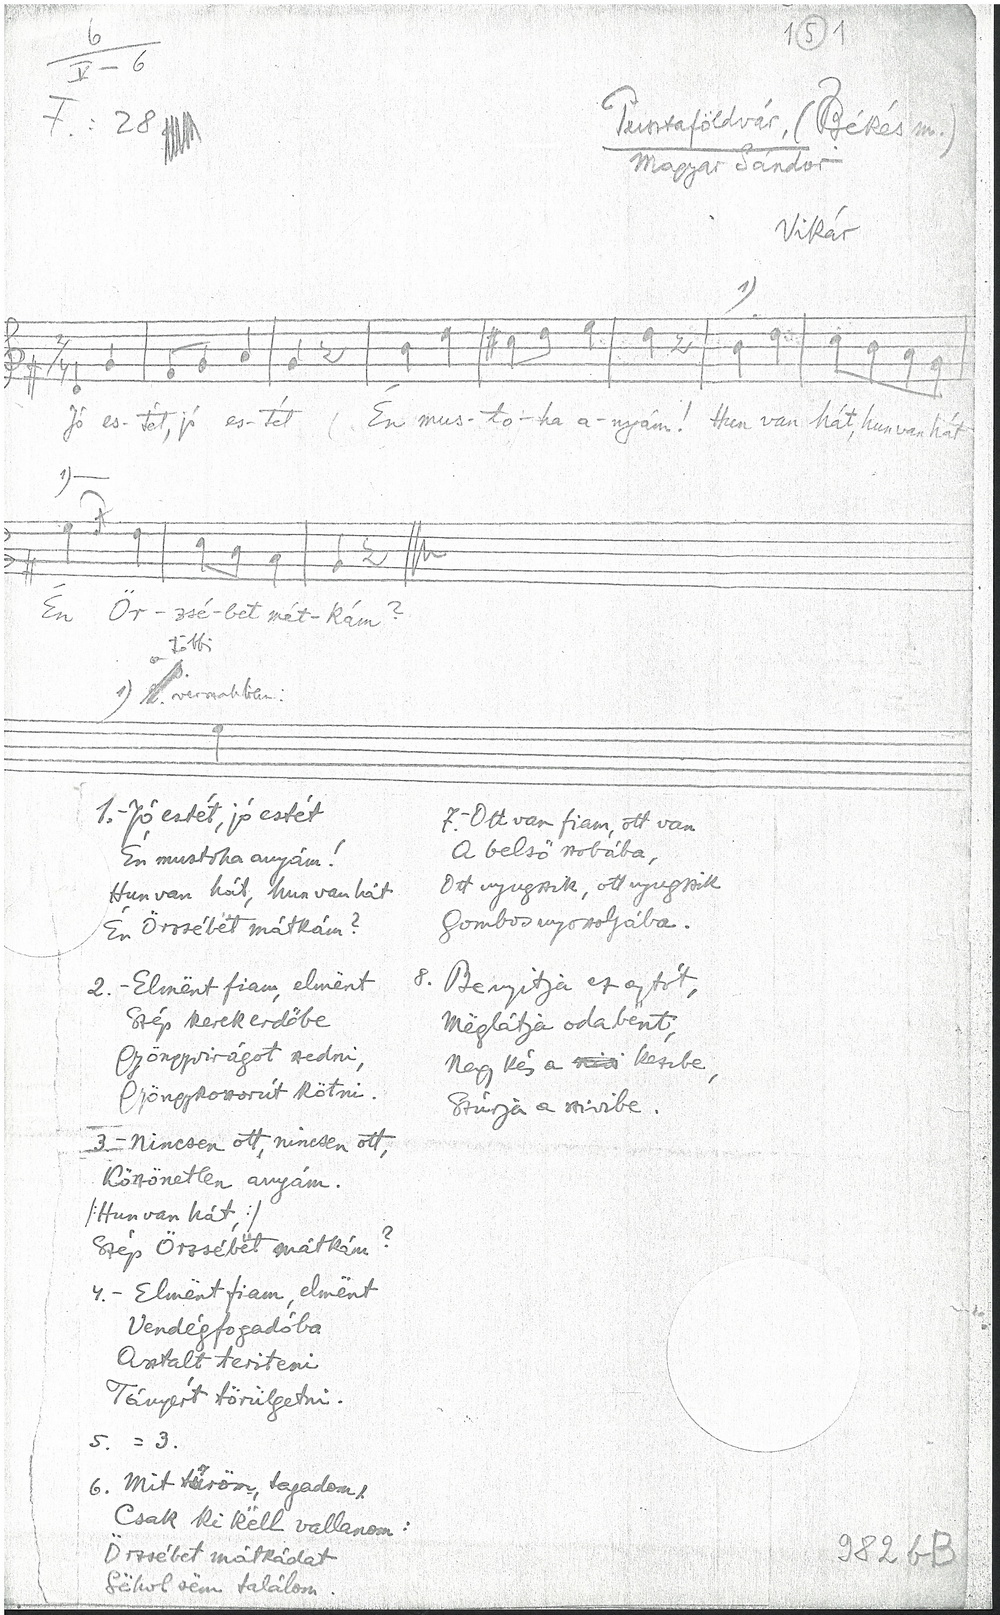 6
V – 6
F.: 28
1 5 1
Pusztaföldvár, (Békés m.)
Magyar Sándor
Vikár
1)
2/4
Jó es-tét, jó es-tét Én mus-to-ha a-nyám! Hun van hát, hun van hát
1)
Én Ör-zsé-bet mát-kám?
többi
1) versszakban:
1.- Jó estét, jó estét
Én mustoha anyám!
Hun van hát, hun van hát
Én Örzsébët mátkám?
2. - Elmënt fiam, elmënt
Szép kerek erdőbe
Gyöngyvirágot szedni,
Gyöngykoszorút kötni.
3.- Nincsen ott, nincsen ott,
Köszönetlen anyám.
/:Hun van hát,:/
Szép Örzsébët mátkám?
4.- Elmënt fiam, elmënt
Vendégfogadóba
Asztalt teríteni
Tányért törülgetni.
5. = 3.
6. Mit tűröm, tagadom,
Csak ki këll vallanom:
Örzsébet mátkádat
Sëhol sëm találom.
7.- Ott van fiam, ott van
A belső szobába,
Ott nyugszik, ott nyugszik
Gombos nyoszoljába.
8. Benyitja ez ajtót,
Mëglátja odabent,
Nagy kés a kezibe,
Szúrja a szivibe.
982 bB